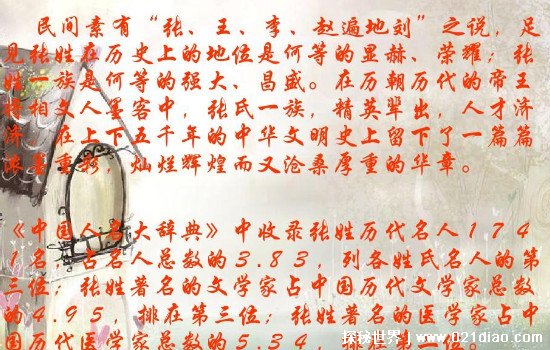 民间素有“张、王、李、赵遍地刘”之说，足
见张姓在历史上的地位是何等的显赫、荣耀；张
姓一族是何等的强大、昌盛。在历朝历代的帝王
将相文人墨客中，张氏一族，精英辈出，人才济
济，在上下五千年的中华文明史上留下了一篇篇
浓墨重彩，灿烂辉煌而又沧桑厚重的华章。
《中国人名大辞典》中收录张姓历代名人174
1名，占名人总数的3.83，列各姓氏名人的第
三位；张姓著名的文学家占中国历代文学家总数
的4.95，排在第三位；张姓著名的医学家占中
国历代医学家总数的5.34，排在第
探秘世界 | www.021diao.com